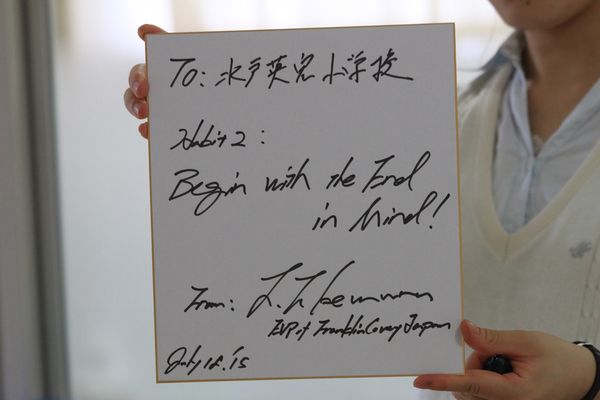 To: 水戸英宏小学校
Habit 2:
Begin with the End
in Mind!
From:
EVP of FranklinCovey Japan
July 16.'15